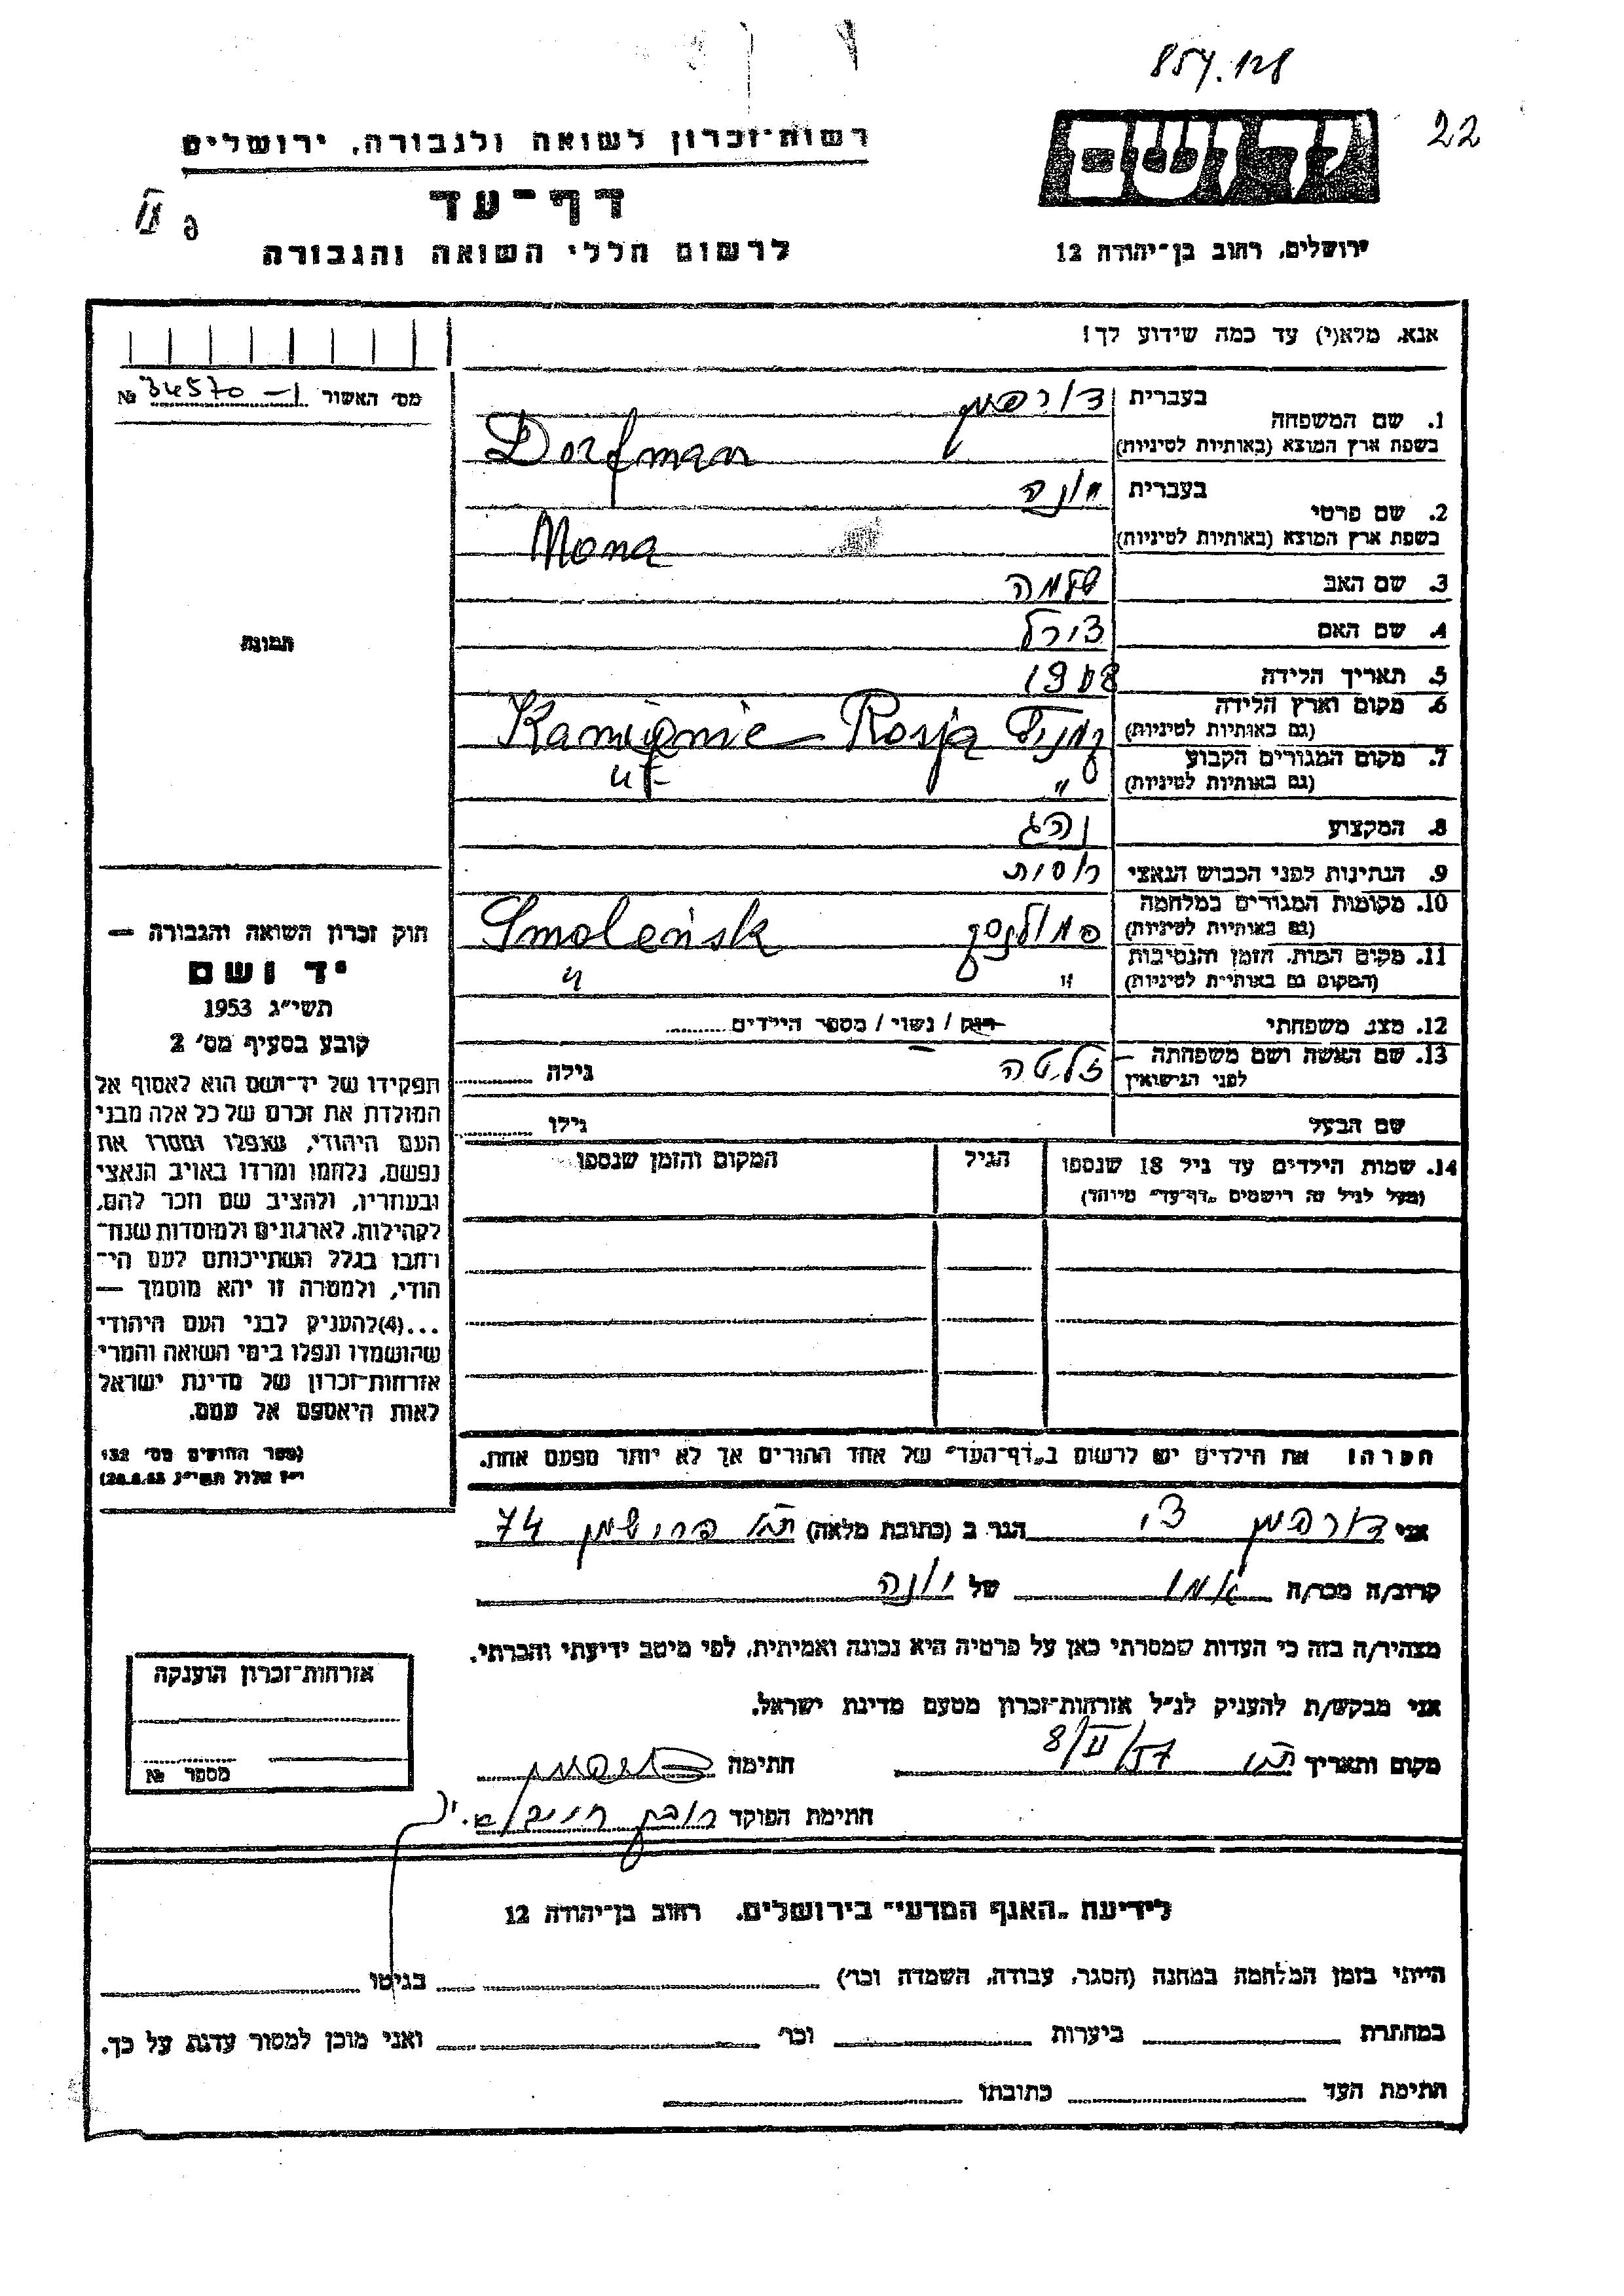 857.128
22
רשות־זכרון לשואה ולגבורה, ירושלים
יד ושם
דף־עד
לרשום חללי השואה והגבורה
ירושלים, רחוב בן־יהודה 12
אנא, מלא(י) עד כמה שידוע לך!
מס' האשור 34570 — 1 №
1. שם המשפחה
בעברית דורפמן
בשפת ארץ המוצא (באותיות לטיניות) Dorfman
2. שם פרטי
בעברית מונה
בשפת ארץ המוצא (באותיות לטיניות) Mona
3. שם האב שלמה
4. שם האם
5. תאריך הלידה 1908
6. מקום וארץ הלידה
(גם באותיות לטיניות) Rosja
7. מקום המגורים הקבוע
(גם באותיות לטיניות) "
8. המקצוע נהג
9. הנתינות לפני הכבוש הנאצי רוסית
10. מקומות המגורים במלחמה
(גם באותיות לטיניות) סמולנסק Smoleńsk
11. מקום המות, הזמן והנסיבות
(המקום גם באותיות לטיניות) " "
12. מצב משפחתי רוק / נשוי / מספר הילדים
13. שם האשה ושם משפחתה
לפני הנישואין זלטה גילה
שם הבעל גילו
14. שמות הילדים עד גיל 18 שנספו הגיל המקום והזמן שנספו
(מעל לגיל זה רישמים „דף־עד" מיוחד)
הערה! את הילדים יש לרשום ב„דף־העד" של אחד ההורים אך לא יותר מפעם אחת.
תמונה
חוק זכרון השואה והגבורה —
יד ושם
תשי"ג 1953
קובע בסעיף מס' 2
תפקידו של יד־ושם הוא לאסוף אל
המולדת את זכרם של כל אלה מבני
העם היהודי, שנפלו ומסרו את
נפשם, נלחמו ומרדו באויב הנאצי
ובעוזריו, ולהציב שם וזכר להם,
לקהילות, לארגונים ולמוסדות שנח־
רבו בגלל השתייכותם לעם הי־
הודי, ולמטרה זו יהא מוסמך —
...(4)להעניק לבני העם היהודי
שהושמדו ונפלו בימי השואה והמרי
אזרחות־זכרון של מדינת ישראל
לאות היאספם אל עמם.
(ספר החוקים מס' 132
י"ז אלול תשי"ג 28.8.53)
אני דורפמן הגר ב (כתובת מלאה) 74
קרוב/ה מכר/ה של יונה
מצהיר/ה בזה כי העדות שמסרתי כאן על פרטיה היא נכונה ואמיתית, לפי מיטב ידיעתי והכרתי.
אני מבקש/ת להעניק לנ"ל אזרחות־זכרון מטעם מדינת ישראל.
מקום ותאריך 8/II/57 חתימה
חתימת הפוקד
אזרחות־זכרון הוענקה
מספר №
לידיעת „האגף המדעי" בירושלים, רחוב בן־יהודה 12
הייתי בזמן המלחמה במחנה (הסגר, עבודה, השמדה וכו') בגיטו
במחתרת ביערות וכו' ואני מוכן למסור עדות על כך.
חתימת העד כתובתו